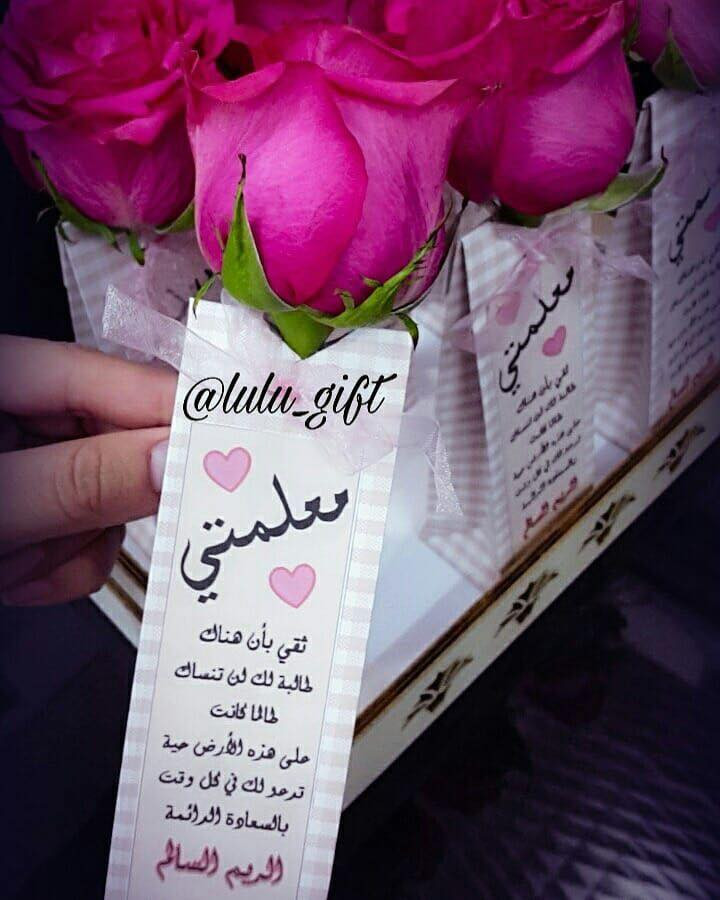 @lulu_gift
معلمتي
ثقي بأن هناك
طالبة لك لن تنساك
طالما كانت
على هذه الأرض حية
تدعو لك في كل وقت
بالسعادة الدائمة
الريم السالم
معلمتي
ثقي بأن هناك
طالبة لك لن تنساك
طالما كانت
على هذه الأرض حية
تدعو لك في كل وقت
بالسعادة الدائمة
الريم السالم